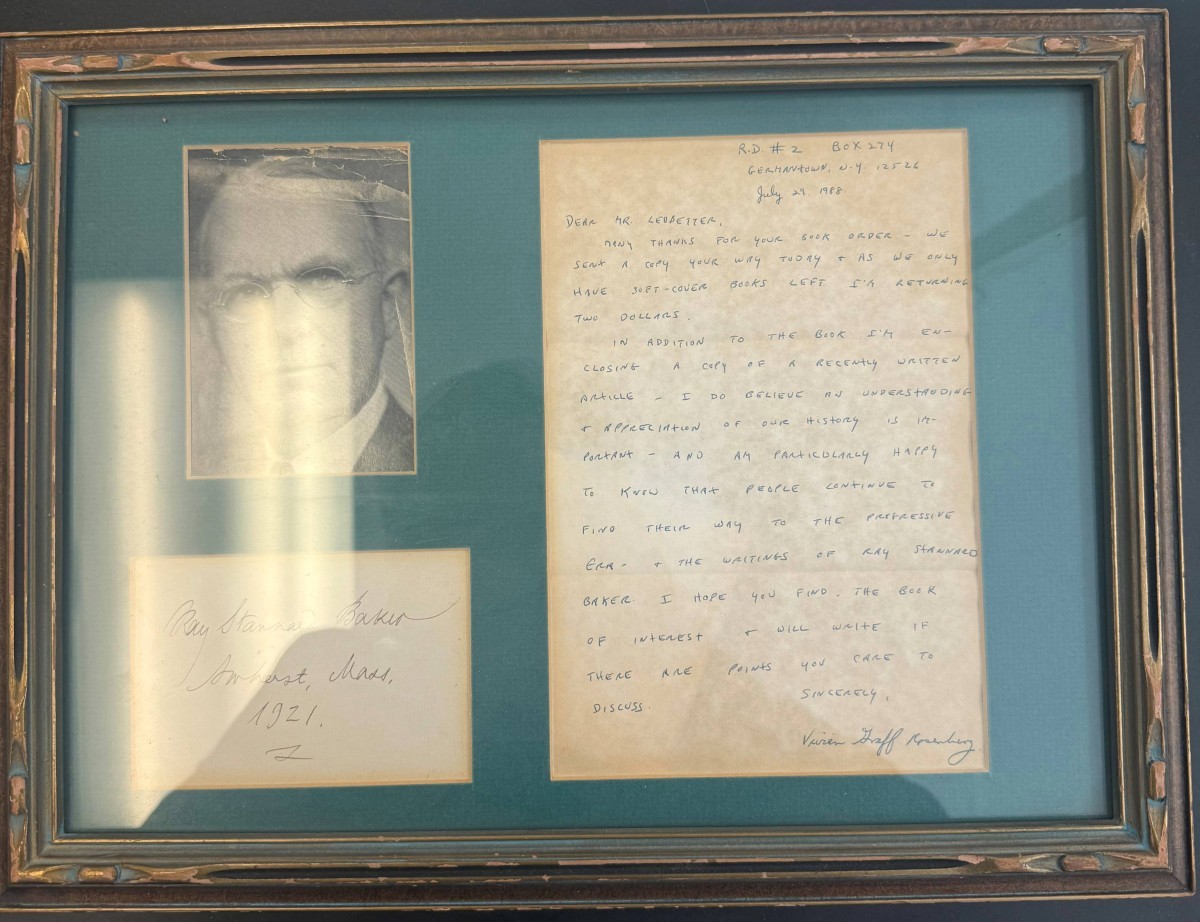 Ray Stannard Baker
Amherst, Mass.
1921.
R.D. #2 BOX 274
GERMANTOWN, N.Y. 12526
July 29, 1988
DEAR MR. LEDBETTER,
MANY THANKS FOR YOUR BOOK ORDER – WE
SENT A COPY YOUR WAY TODAY + AS WE ONLY
HAVE SOFT-COVER BOOKS LEFT I'M RETURNING
TWO DOLLARS.
IN ADDITION TO THE BOOK I'M EN-
CLOSING A COPY OF A RECENTLY WRITTEN
ARTICLE – I DO BELIEVE AN UNDERSTANDING
+ APPRECIATION OF OUR HISTORY IS IM-
PORTANT – AND AM PARTICULARLY HAPPY
TO KNOW THAT PEOPLE CONTINUE TO
FIND THEIR WAY TO THE PROGRESSIVE
ERA – + THE WRITINGS OF RAY STANNARD
BAKER. I HOPE YOU FIND THE BOOK
OF INTEREST + WILL WRITE IF
THERE ARE POINTS YOU CARE TO
DISCUSS.
SINCERELY,
Vivien Graff Rosenberg